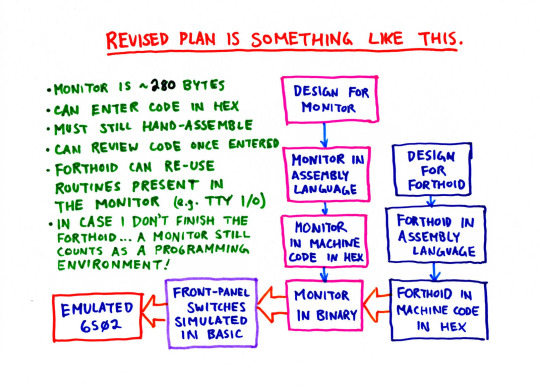 REVISED PLAN IS SOMETHING LIKE THIS.
• MONITOR IS ~280 BYTES
• CAN ENTER CODE IN HEX
• MUST STILL HAND-ASSEMBLE
• CAN REVIEW CODE ONCE ENTERED
• FORTHOID CAN RE-USE
ROUTINES PRESENT IN
THE MONITOR (e.g. TTY I/O)
• IN CASE I DON'T FINISH THE
FORTHOID... A MONITOR STILL
COUNTS AS A PROGRAMMING
ENVIRONMENT!
DESIGN FOR
MONITOR
MONITOR IN
ASSEMBLY
LANGUAGE
MONITOR
IN MACHINE
CODE IN HEX
DESIGN
FOR
FORTHOID
FORTHOID IN
ASSEMBLY
LANGUAGE
EMULATED
6502
FRONT-PANEL
SWITCHES
SIMULATED
IN BASIC
MONITOR
IN BINARY
FORTHOID IN
MACHINE CODE
IN HEX